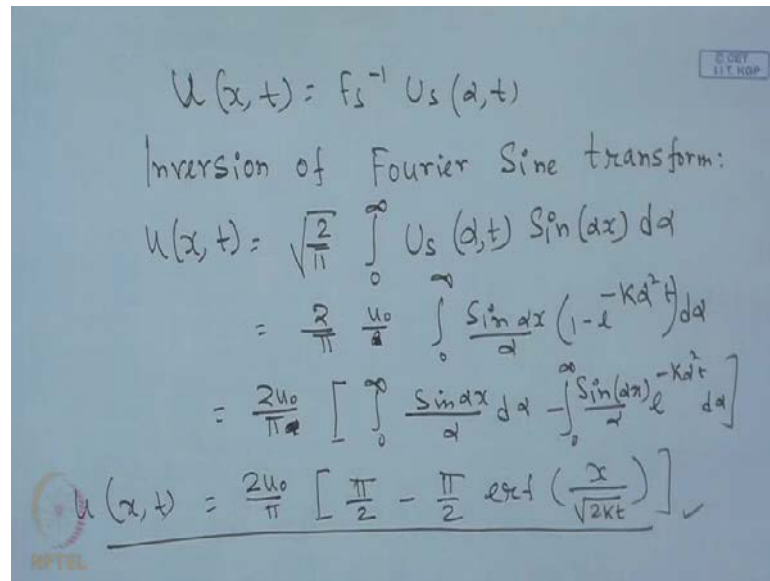 U(x,t) = Fs⁻¹ Us(α,t)
© CET
I.I.T. KGP
Inversion of Fourier Sine transform:
U(x,t) = √(2/π) ∫₀^∞ Us(α,t) Sin(αx) dα
= 2/π u₀ ∫₀^∞ Sin αx/α (1 - e^(-Kα²t)) dα
= 2u₀/π [ ∫₀^∞ Sin αx/α dα - ∫₀^∞ Sin(αx)/α e^(-Kα²t) dα ]
U(x,t) = 2u₀/π [ π/2 - π/2 erf (x/√2Kt) ] ✓
NPTEL